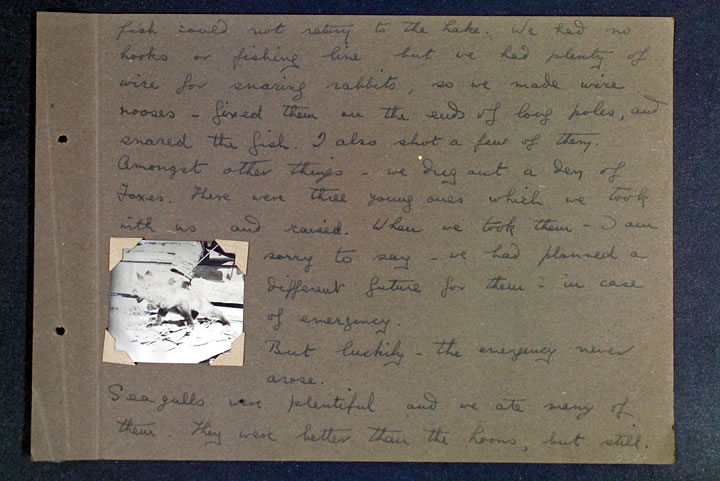 fish could not return to the Lake. We had no
hooks or fishing line but we had plenty of
wire for snaring rabbits, so we made wire
nooses - fixed them on the ends of long poles, and
snared the fish. I also shot a few of them.
Amongst other things - we dug out a den of
Foxes. There were three young ones which we took
with us and raised. When we took them - I am
sorry to say - we had planned a
different future for them - in case
of emergency.
But luckily - the emergency never
arose.
Seagulls were plentiful and we ate many of
them. They were better than the Loons, but still.